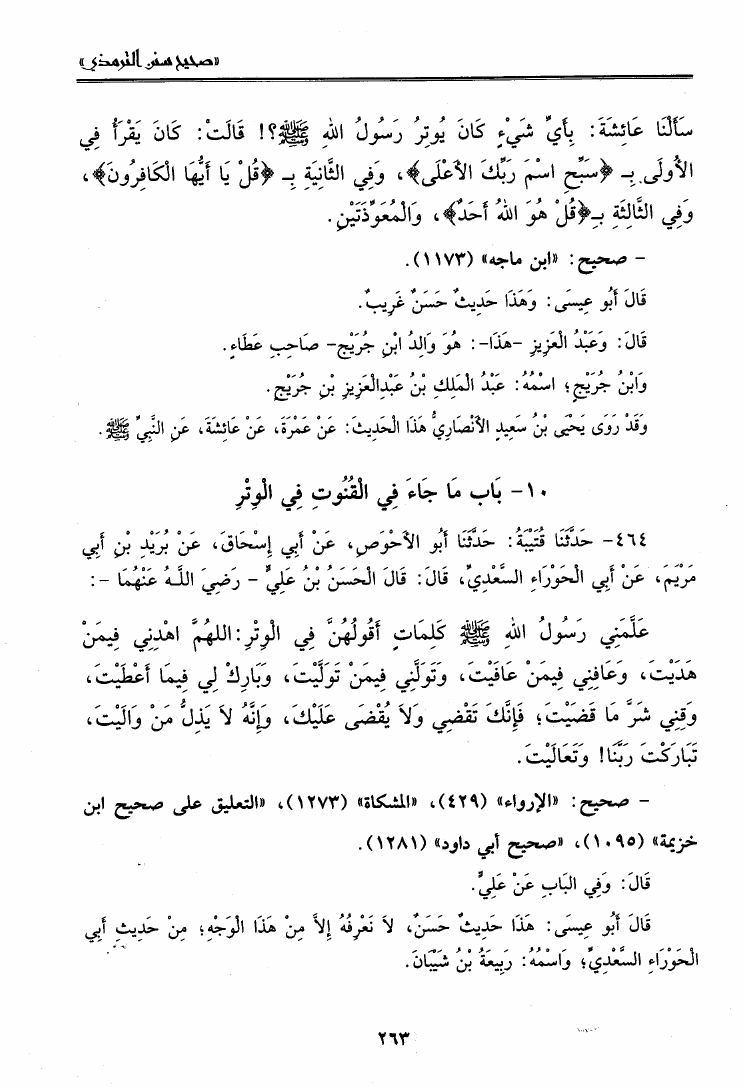 «صحيح سنن الترمذي»
سَأَلْنَا عَائِشَةَ: بِأَيِّ شَيْءٍ كَانَ يُوتِرُ رَسُولُ اللهِ ﷺ؟! قَالَتْ: كَانَ يَقْرَأُ فِي
الأُولَى بِـ ﴿سَبِّحِ اسْمَ رَبِّكَ الأَعْلَى﴾، وَفِي الثَّانِيَةِ بِـ ﴿قُلْ يَا أَيُّهَا الْكَافِرُونَ﴾،
وَفِي الثَّالِثَةِ بِـ﴿قُلْ هُوَ اللهُ أَحَدٌ﴾، وَالْمُعَوِّذَتَيْنِ.
- صحيح: «ابن ماجه» (١١٧٣).
قَالَ أَبُو عِيسَى: وَهَذَا حَدِيثٌ حَسَنٌ غَرِيبٌ.
قَالَ: وَعَبْدُ الْعَزِيزِ -هَذَا-: هُوَ وَالِدُ ابْنِ جُرَيْجٍ- صَاحِبِ عَطَاءٍ.
وَابْنُ جُرَيْجٍ؛ اسْمُهُ: عَبْدُ الْمَلِكِ بْنُ عَبْدِالْعَزِيزِ بْنِ جُرَيْجٍ.
وَقَدْ رَوَى يَحْيَى بْنُ سَعِيدٍ الأَنْصَارِيُّ هَذَا الْحَدِيثَ: عَنْ عَمْرَةَ، عَنْ عَائِشَةَ، عَنِ النَّبِيِّ ﷺ.
١٠- بَاب مَا جَاءَ فِي الْقُنُوتِ فِي الْوِتْرِ
٤٦٤- حَدَّثَنَا قُتَيْبَةُ: حَدَّثَنَا أَبُو الأَحْوَصِ، عَنْ أَبِي إِسْحَاقَ، عَنْ بُرَيْدِ بْنِ أَبِي
مَرْيَمَ، عَنْ أَبِي الْحَوْرَاءِ السَّعْدِيِّ، قَالَ: قَالَ الْحَسَنُ بْنُ عَلِيٍّ - رَضِيَ اللَّهُ عَنْهُمَا -:
عَلَّمَنِي رَسُولُ اللهِ ﷺ كَلِمَاتٍ أَقُولُهُنَّ فِي الْوِتْرِ: اللهُمَّ اهْدِنِي فِيمَنْ
هَدَيْتَ، وَعَافِنِي فِيمَنْ عَافَيْتَ، وَتَوَلَّنِي فِيمَنْ تَوَلَّيْتَ، وَبَارِكْ لِي فِيمَا أَعْطَيْتَ،
وَقِنِي شَرَّ مَا قَضَيْتَ؛ فَإِنَّكَ تَقْضِي وَلاَ يُقْضَى عَلَيْكَ، وَإِنَّهُ لاَ يَذِلُّ مَنْ وَالَيْتَ،
تَبَارَكْتَ رَبَّنَا! وَتَعَالَيْتَ.
- صحيح: «الإرواء» (٤٢٩)، «المشكاة» (١٢٧٣)، «التعليق على صحيح ابن
خزيمة» (١٠٩٥)، «صحيح أبي داود» (١٢٨١).
قَالَ: وَفِي الْبَابِ عَنْ عَلِيٍّ.
قَالَ أَبُو عِيسَى: هَذَا حَدِيثٌ حَسَنٌ، لاَ نَعْرِفُهُ إِلاَّ مِنْ هَذَا الْوَجْهِ؛ مِنْ حَدِيثِ أَبِي
الْحَوْرَاءِ السَّعْدِيِّ؛ وَاسْمُهُ: رَبِيعَةُ بْنُ شَيْبَانَ.
٢٦٣